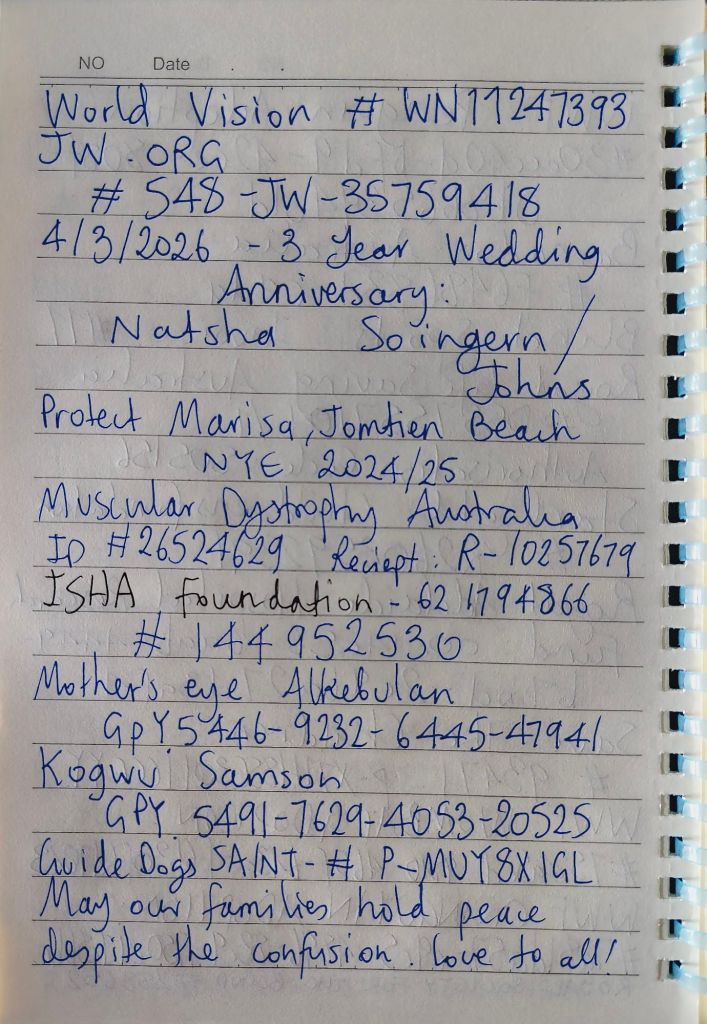 NO Date . .
World Vision # WN11247393
JW.ORG
# 548-JW-35759418
4/3/2026 - 3 Year Wedding
Anniversary:
Natsha Soingern/
Johns
Protect Marisa, Jomtien Beach
NYE 2024/25
Muscular Dystrophy Australia
ID #26524629 Reciept: R-10257679
ISHA foundation - 62 1794866
# 144952530
Mother's eye Alkebulan
GPY 5446-9232-6445-47941
Kogwu Samson
GPY 5491-7629-4053-20525
Guide Dogs SA/NT - # P-MUY8X1GL
May our families hold peace
despite the confusion. Love to all!